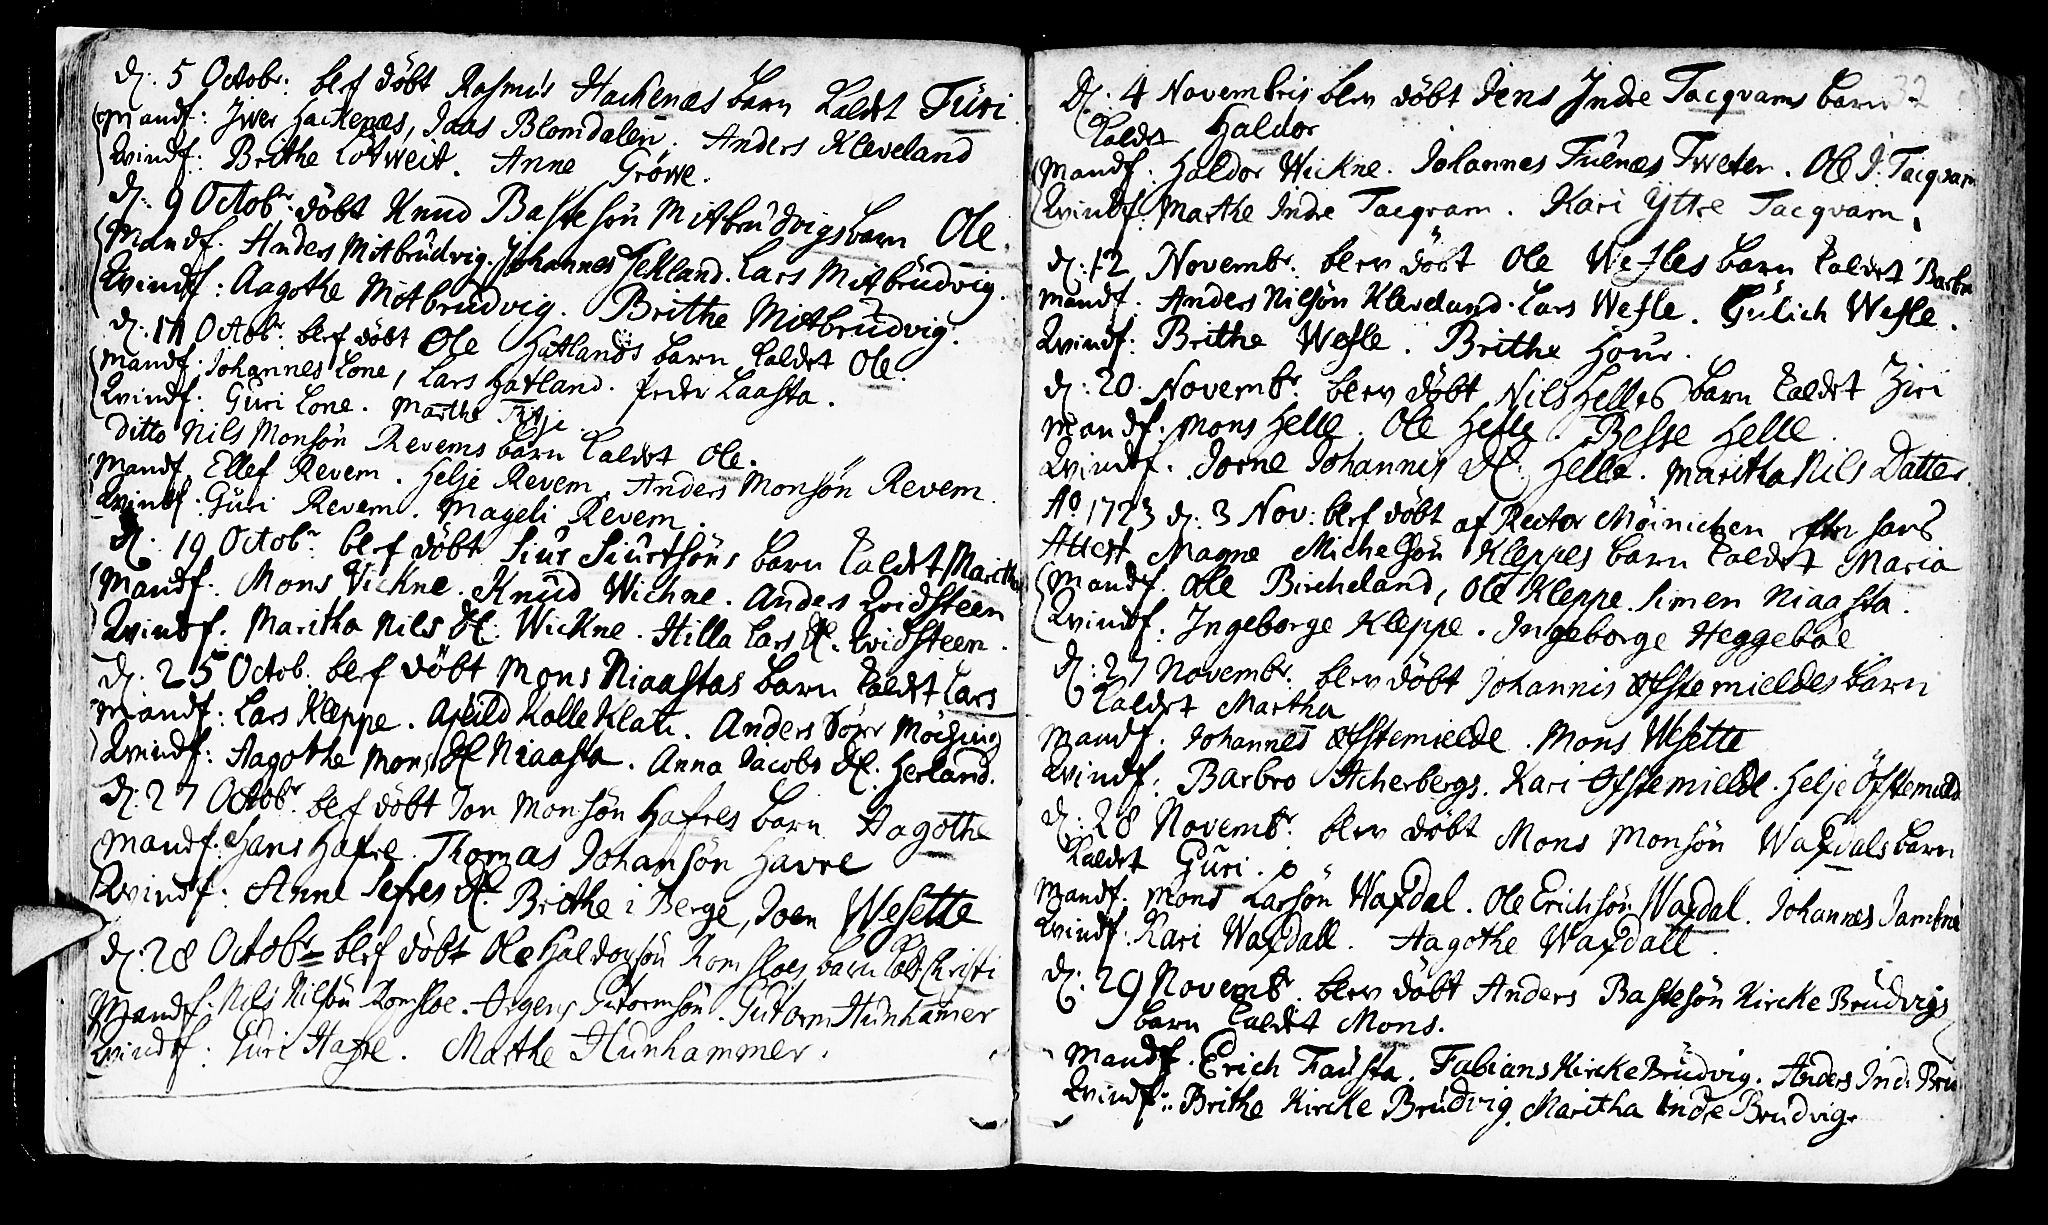 d: 5 Octobr: blef döbt Rasmus Hackenæs barn kaldet Turi.
Mandf: Iwer Hackenæs, Jaas Blomdalen. Anders Kleveland
Qvindf: Brithe Lötweit. Anne Gröwe.
d: 9 Octobr: döbt Knud Bastesön Mitbrudvigs barn Ole.
Mandf. Anders Mitbrudvig. Johannes Jekland. Lars Mitbrudvig.
Qvindf: Aagothe Mitbrudvig. Brithe Mitbrudvig.
d: 14 Octobr: blef döbt Ole Hatlands barn kaldet Ole.
Mandf: Johannes Lone, Lars Hatland. Peder Laasta.
Qvindf: Guri Lone. Marthe
Ditto Nils Monsön Revems barn kaldet Ole.
Mandf. Ellef Revem. Helje Revem. Anders Monsön Revem.
Qvindf. Guri Revem. Mageli Revem.
d: 19 Octobr: blef döbt Siur Siurtsöns barn kaldet Maritha
Mandf: Mons Vickne. Knud Wichne. Anders Qvidsteen
Qvindf. Maritha Nils Dl. Wickne. Hilla Lars Dl. Qvidsteen.
d: 25 Octob. blef döbt Mons Niaastas barn kaldet Lars
Mandf: Lars Kleppe. Arild Kolle Klat. Anders
Qvindf: Aagothe Mons Dl Niaasta. Anna Jacobs Dl. Herland.
d: 27 Octobr. blef döbt Jon Monsön Hafres barn Aagothe
Mandf: Hans Hafre. Thomas Johansön Havre
Qvindf: Anne Sefres Dl. Brithe i Berge, Joen Wesette
d: 28 Octobr blef döbt Ole Haldorsön Romsloes barn kald. Christi
Mandf. Nils Nilsön Romsloe. Örgens Gutormsön. Gutorm Hunhamer
Qvindf: Guri Hafre. Marthe Hunhammer.
32
D: 4 Novembris blev döbt Jens Indre Tacqvams barn
kaldet Haldor
Mandf. Haldor Wickne. Johannes Fuenæs Tweter. Ole I. Tacqvam
Qvindf. Marthe Indre Tacqvam. Kari Ytre Tacqvam.
d: 12 Novembr: blev döbt Ole Wesles barn kaldet Barbro
Mandf. Anders Nilsön Kleveland. Lars Wesle. Gulich Wesle.
Qvindf: Brithe Wesle. Brithe Hour.
d: 20. Novembr. blev döbt Nils Helles barn kaldet Ziri
Mandf. Mons Helle. Ole Helle. Besse Helle.
Qvindf. Jorne Johannis Dl: Helle. Maritha Nils Datter.
Ao 1723 d: 3 Nov: blef döbt af Rector Möinichen efter hans
Attest Magne Michelsön Kleppes barn kaldet Maria
Mandf. Ole Bircheland, Ole Kleppe. Simen Niaasta.
Qvindf. Ingeborge Kleppe. Ingeborge Heggeboe
d: 27 Novembr. blev döbt Johannis Ofstemieldes barn
kaldet Martha
Mandf. Johannes Ofstemielde. Mons Wesette
Qvindf: Barbro Acherbergs. Kari Ofstemielde. Helje Öfstemielde
d: 28 Novembr. blev döbt Mons Monsön Waxdals barn
kaldet Guri.
Mandf. Mons Larsön Waxdal. Ole Erichsön Waxdal. Johannes
Qvindf. Kari Waxdall. Aagothe Waxdall.
d: 29 Novembr. blev döbt Anders Bastesön Kircke Brudvigs
barn kaldet Mons.
Mandf. Erich Fausta. Fabians Kircke Brudvig. Anders Ind. Bru
Qvindf: Brithe Kircke Brudvig. Maritha Indre Brudvig.